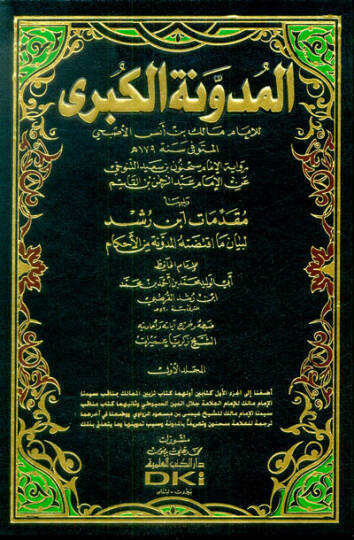 المُدوَّنة الكُبرى
للإمام مالك بن أنس الأصبحي
المتوفى سنة ١٧٩هـ
رواية الإمام سحنون بن سعيد التنوخي
عن الإمام عبد الرحمن بن القاسم
ويليها
مقدمات ابن رشد
لبيان ما اقتضته المدونة من الأحكام
للإمام الحافظ
أبي الوليد محمد بن أحمد بن محمد
ابن رشد القرطبي
ضبطه وخرج آياته وأحاديثه
الشيخ زكريا عميرات
المجلد الأول
أضفنا إلى الجزء الأول كتابين أولهما كتاب تزيين الممالك بمناقب سيدنا
الإمام مالك للإمام العلامة جلال الدين السيوطي وثانيهما كتاب مناقب
سيدنا الإمام مالك للشيخ عيسى بن مسعود الزواوي ووضعنا في آخرهما
ترجمة للعلامة سحنون وتعريفاً بالمدونة وسبب تدوينها وما يتعلق بذلك
منشورات
محمد علي بيضون
دار الكتب العلمية
DKi
بيروت - لبنان